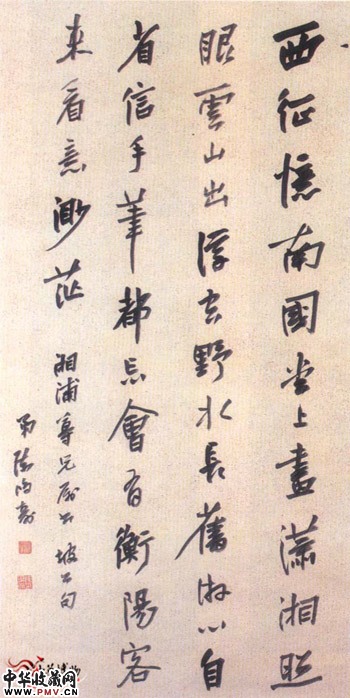 西征憶南國堂上畫瀟湘照
眼雲山出浮空野水長舊游心自
省信手筆都忘會有衡陽客
来看意渺茫
湘浦尊兄属书 坡公句
弟陳鴻壽
中华收藏网
WWW.PMV.CN